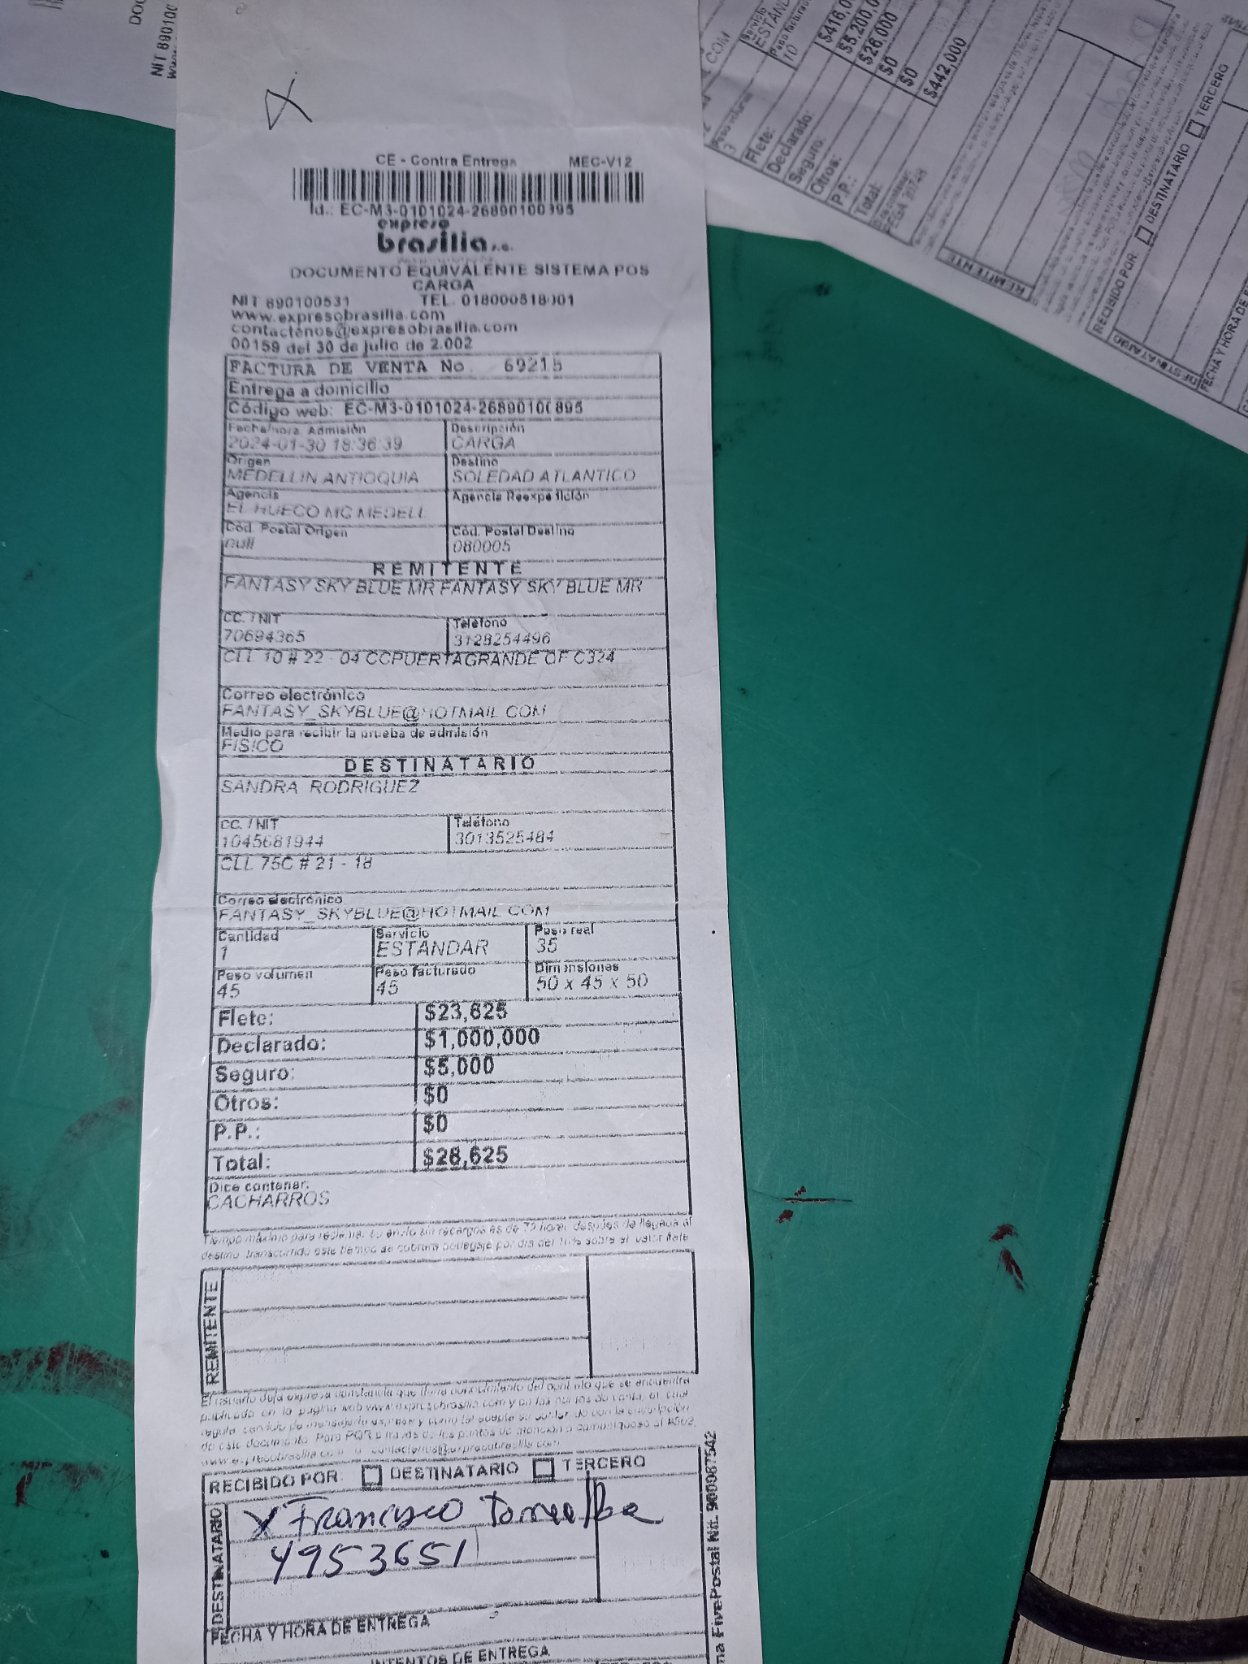 CE - Contra Entrega MEC-V12
Id.: EC-M3-0101024-26890100895
expreso
brasilia s.a.
DOCUMENTO EQUIVALENTE SISTEMA POS
CARGA
NIT 890100531 TEL. 018000518001
www.expresobrasilia.com
contactenos@expresobrasilia.com
00159 del 30 de julio de 2.002
FACTURA DE VENTA No. 69215
Entrega a domicilio
Código web: EC-M3-0101024-26890100895
Fecha/hora Admisión Descripción
2024-01-30 18:36:39 CARGA
Origen Destino
MEDELLIN ANTIOQUIA SOLEDAD ATLANTICO
Agencia Agencia Reexpedición
EL HUECO MC MEDELL
Cód. Postal Origen Cód. Postal Destino
null 080005
REMITENTE
FANTASY SKY BLUE MR FANTASY SKY BLUE MR
CC. / NIT Teléfono
70694365 3128254496
CLL 10 # 22 - 04 CCPUERTAGRANDE OF C324
Correo electrónico
FANTASY_SKYBLUE@HOTMAIL.COM
Medio para recibir la prueba de admisión
FISICO
DESTINATARIO
SANDRA RODRIGUEZ
CC. / NIT Teléfono
1045681944 3013525484
CLL 75C # 21 - 18
Correo electrónico
FANTASY_SKYBLUE@HOTMAIL.COM
Cantidad Servicio Peso real
1 ESTANDAR 35
Peso volumen Peso facturado Dimensiones
45 45 50 x 45 x 50
Flete: $23,625
Declarado: $1,000,000
Seguro: $5,000
Otros: $0
P.P.: $0
Total: $28,625
Dice contener:
CACHARROS
Tiempo máximo para reclamar su envío sin recargos es de 72 horas después de llegada al
destino, transcurrido este tiempo se cobrara bodegaje por día del 10% sobre el valor flete
REMITENTE
RECIBIDO POR: DESTINATARIO TERCERO
DESTINATARIO
X Francisco Torrealba
4953651
FECHA Y HORA DE ENTREGA
INTENTOS DE ENTREGA
FivePostal Nit. 900087542
NIT 890100
COM
ESTAN
Peso facturado
10
Peso volumen
3
Flete: $416,0
Declarado: $5,200,0
Seguro: $26,000
Otros: $0
P.P.: $0
Total: $442,000
REMITENTE
RECIBIDO POR: DESTINATARIO TERCERO
DESTINATARIO
FECHA Y HORA DE